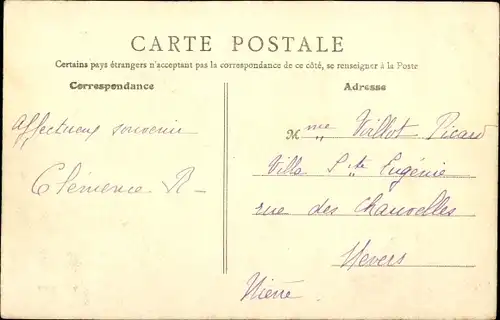 CARTE POSTALE
Certains pays étrangers n'acceptant pas la correspondance de ce côté, se renseigner à la Poste
Correspondance
Adresse
Affectueux souvenir
Clémence R
Mme Vaillot Picard
Villa Ste Eugénie
rue des Chauvelles
Nevers
Nièvre